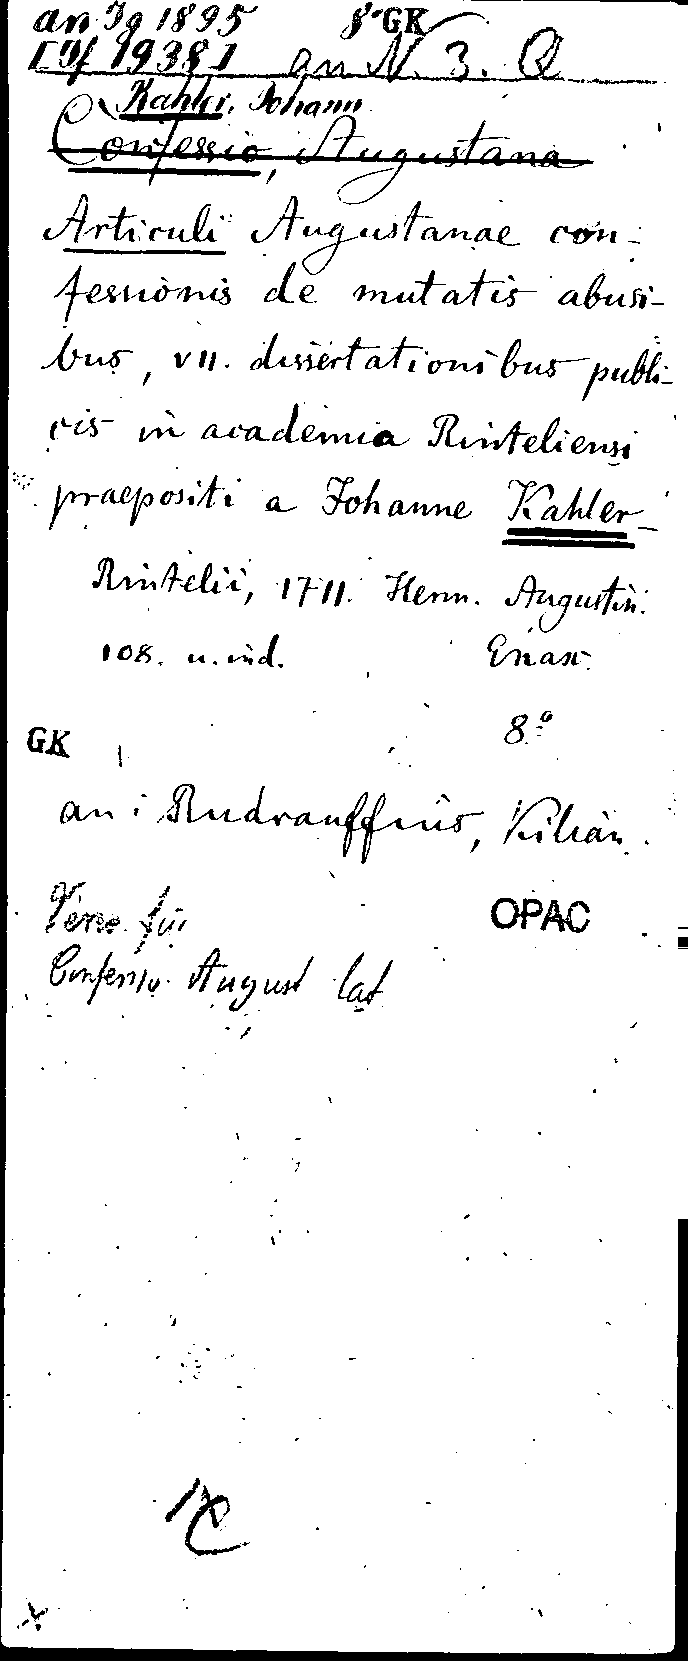 an Jg 1895 8° GK
19381 an N. 3. Q
Kahler, Johann
Confessio, Augustana
Articuli Augustanae con-
fessionis de mutatis abusi-
bus, VII. dissertationibus publi-
cis in academia Rinteliensi
praepositi a Johanne Kahler
Rintelii, 1711. Herm. Augustin.
108. u. ind. Enax.
8°
GK
an: Rudrauffius, Kilian.
Verw. für OPAC
Confessio August lat